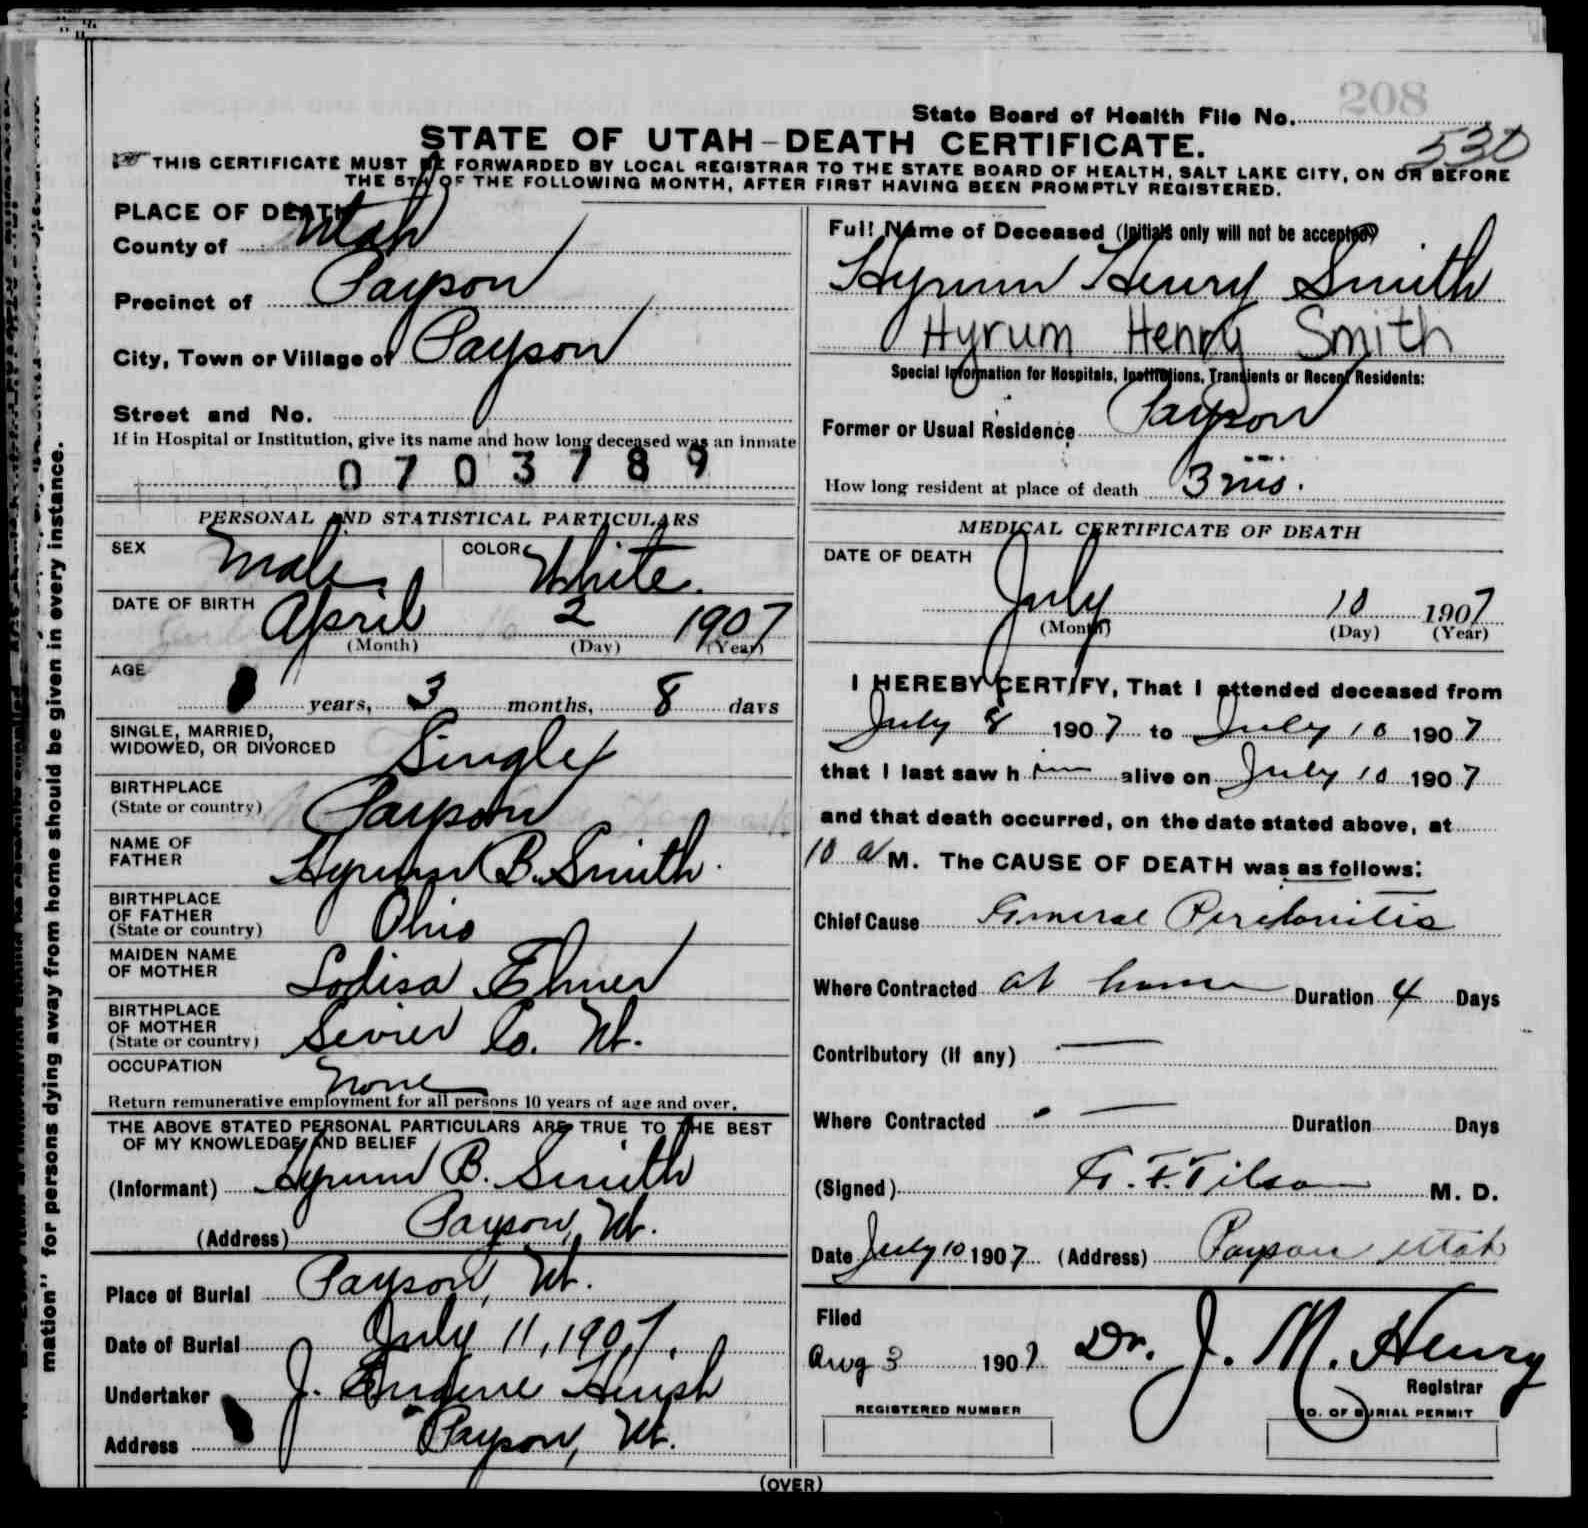 208
State Board of Health File No.
530
STATE OF UTAH-DEATH CERTIFICATE.
THIS CERTIFICATE MUST BE FORWARDED BY LOCAL REGISTRAR TO THE STATE BOARD OF HEALTH, SALT LAKE CITY, ON OR BEFORE
THE 5TH OF THE FOLLOWING MONTH, AFTER FIRST HAVING BEEN PROMPTLY REGISTERED.
PLACE OF DEATH
County of Utah
Precinct of Payson
City, Town or Village of Payson
Street and No.
If in Hospital or Institution, give its name and how long deceased was an inmate
0703789
PERSONAL AND STATISTICAL PARTICULARS
SEX Male. COLOR White.
DATE OF BIRTH April 2 1907
(Month) (Day) (Year)
AGE
years, 3 months, 8 days
SINGLE, MARRIED,
WIDOWED, OR DIVORCED Single
BIRTHPLACE
(State or country) Payson
NAME OF
FATHER Hyrum B. Smith.
BIRTHPLACE
OF FATHER
(State or country) Ohio
MAIDEN NAME
OF MOTHER Lodisa Elmer
BIRTHPLACE
OF MOTHER
(State or country) Sevier Co. Ut.
OCCUPATION
None
Return remunerative employment for all persons 10 years of age and over.
THE ABOVE STATED PERSONAL PARTICULARS ARE TRUE TO THE BEST
OF MY KNOWLEDGE AND BELIEF
(Informant) Hyrum B. Smith
(Address) Payson, Ut.
Place of Burial Payson, Ut.
Date of Burial July 11, 1907.
Undertaker J. Eugene Huish
Address Payson, Ut.
Full Name of Deceased (Initials only will not be accepted)
Hyrum Henry Smith
Hyrum Henry Smith
Special Information for Hospitals, Institutions, Transients or Recent Residents:
Former or Usual Residence Payson
How long resident at place of death 3 mo.
MEDICAL CERTIFICATE OF DEATH
DATE OF DEATH
July 10 1907
(Month) (Day) (Year)
I HEREBY CERTIFY, That I attended deceased from
July 8 1907 to July 10 1907
that I last saw him alive on July 10 1907
and that death occurred, on the date stated above, at
10 a M. The CAUSE OF DEATH was as follows:
Chief Cause General Peritonitis
Where Contracted at home Duration 4 Days
Contributory (if any) —
Where Contracted — Duration Days
(Signed) F. Tilson M. D.
Date July 10 1907 (Address) Payson Utah
Filed
Aug 3 1907 Dr. J. M. Henry
Registrar
REGISTERED NUMBER
NO. OF BURIAL PERMIT
(OVER)
mation" for persons dying away from home should be given in every instance.